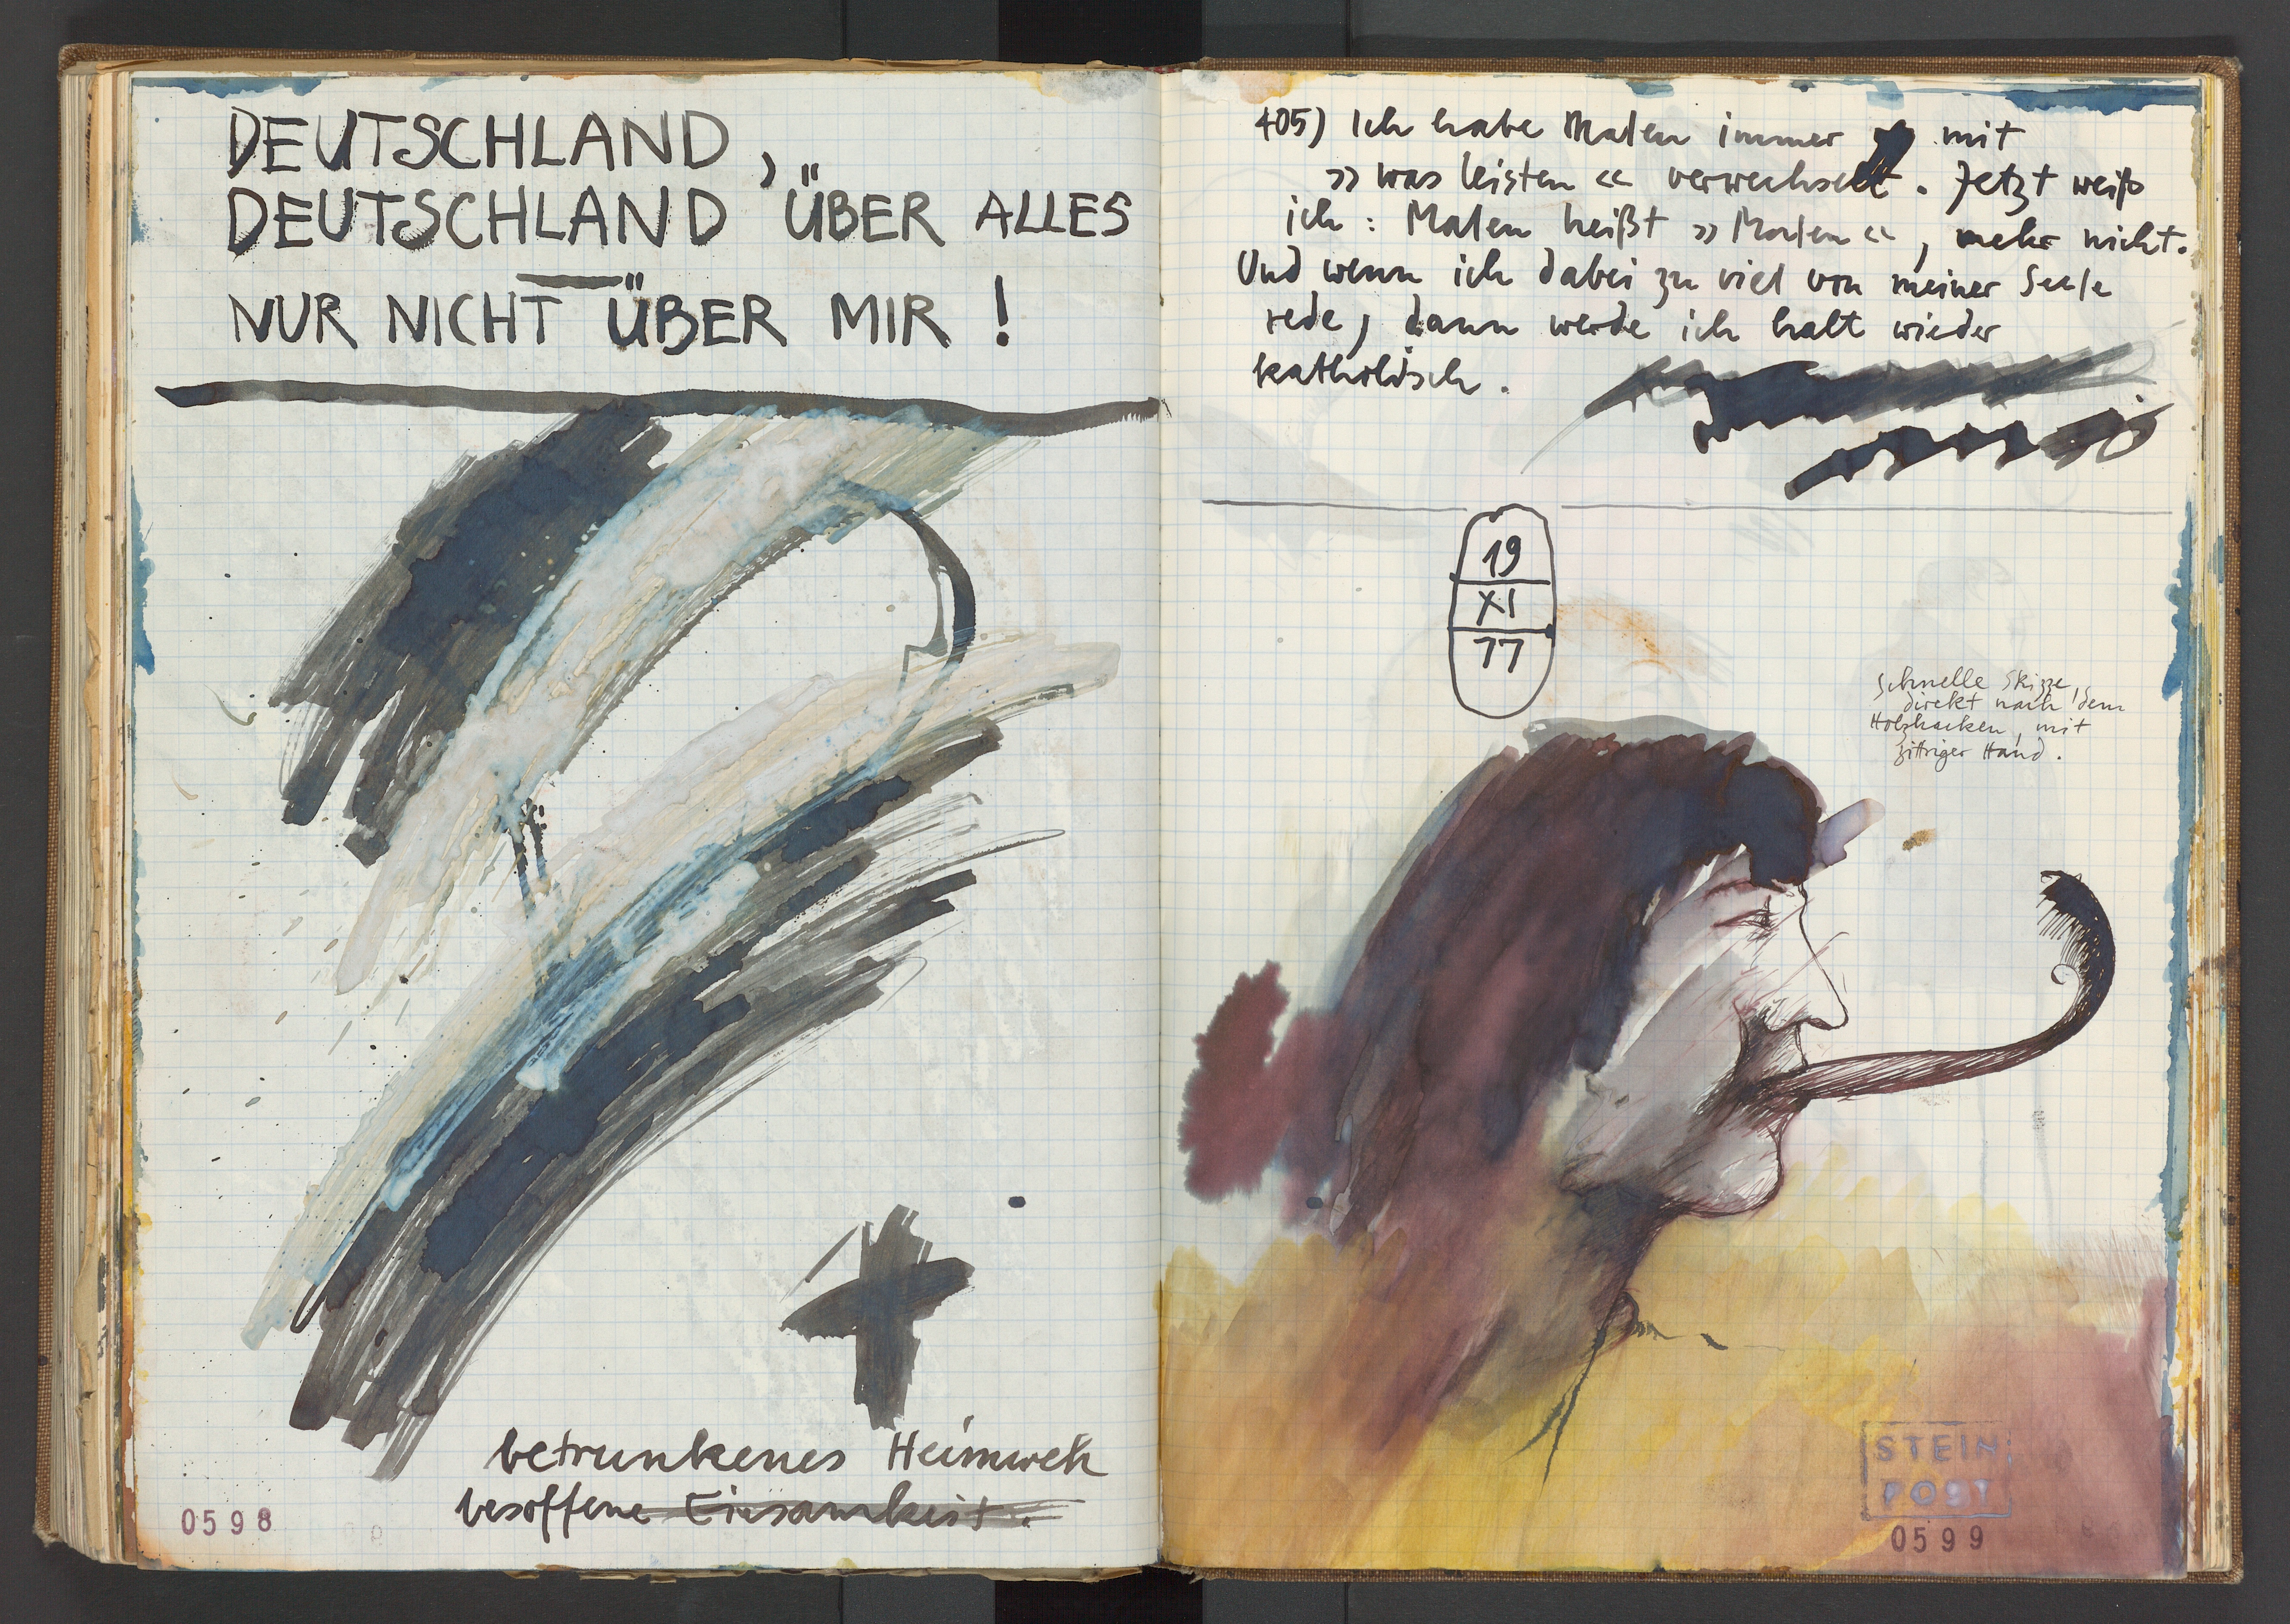 DEUTSCHLAND,
DEUTSCHLAND ÜBER ALLES
NUR NICHT ÜBER MIR !
betrunkenes Heimweh
besoffene Einsamkeit.
0598
405) Ich habe Malen immer mit
»was leisten« verwechselt. Jetzt weiß
ich : Malen heißt »Malen«, mehr nicht.
Und wenn ich dabei zu viel von meiner Seele
rede, dann werde ich halt wieder
katholisch.
19
XI
77
Schnelle Skizze,
direkt nach dem
Holzhacken, mit
zittriger Hand.
STEIN
POST
0599